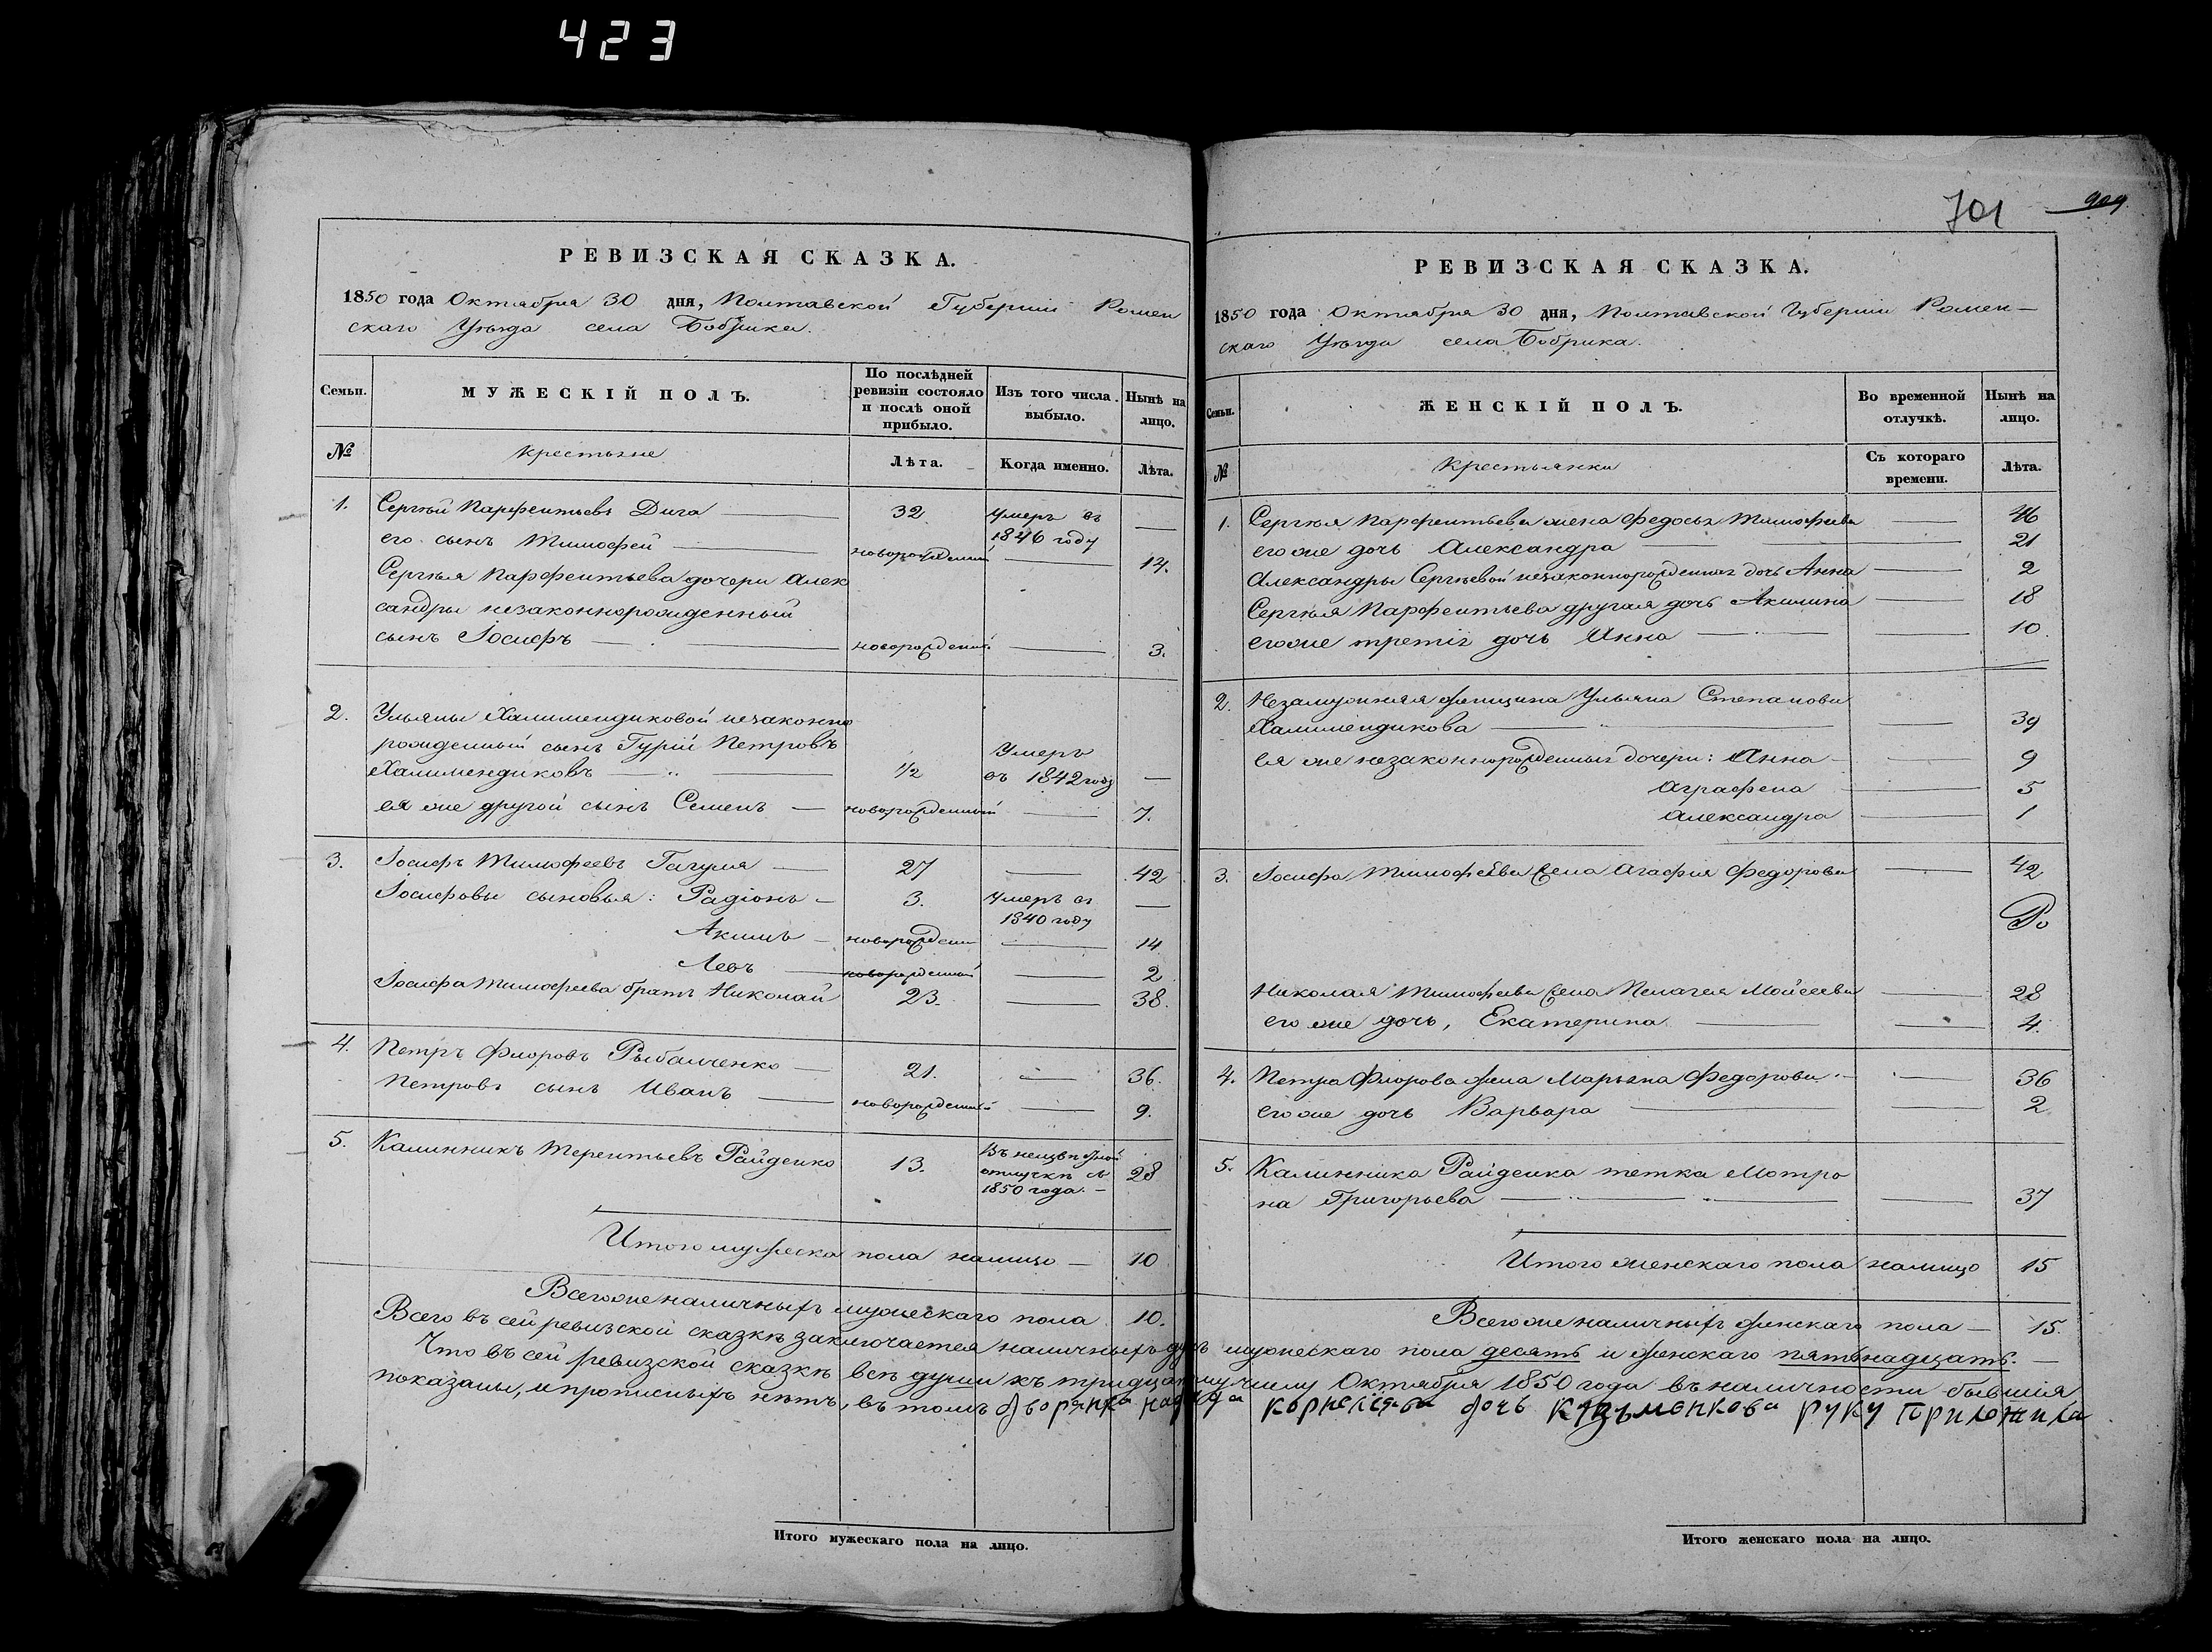 423
РЕВИЗСКАЯ СКАЗКА.
1850 года Октября 30 дня, Полтавской Губерніи Ромен
скаго Уѣзда села Бобрика.
Семьи.
МУЖЕСКІЙ ПОЛЪ.
По послѣдней ревизіи состояло и послѣ оной прибыло.
Изъ того числа выбыло.
Нынѣ на лицо.
№
Крестьяне
Лѣта.
Когда именно.
Лѣта.
1. Сергѣй Парфентьевъ Дига 32 Умеръ въ 1846 году —
его сынъ Тимофей новорожденный — 14.
Сергѣя Парфентьева дочери Алек
сандры незаконнорожденный
сынъ Іосифъ новорожденный — 3.
2. Ульяны Халимендиковой незаконно
рожденный сынъ Гурій Петровъ
Халимендиковъ ½ Умеръ въ 1842 году —
ея же другой сынъ Семенъ — новорожденный — 7.
3. Іосифъ Тимофеевъ Гагуля — 27 — 42
Іосифовы сыновья: Радіонъ — 3. Умеръ въ 1840 году —
Акимъ — новорожден — 14
Левъ — новорожденный — 2
Іосифа Тимофеева братъ Николай 23. — 38.
4. Петръ Флоровъ Рыбалченко — 21. — 36.
Петровъ сынъ Иванъ — новорожденный — 9.
5. Калинникъ Терентьевъ Райденко 13. Въ неизвѣстной отлучкѣ съ 1850 года. — 28
Итого мужеска пола налицо — 10
Всего же наличныхъ мужескаго пола 10.
РЕВИЗСКАЯ СКАЗКА.
701 909
1850 года Октября 30 дня, Полтавской Губерніи Ромен—
скаго Уѣзда села Бобрика.
Семьи.
ЖЕНСКІЙ ПОЛЪ.
Во временной отлучкѣ.
Нынѣ на лицо.
№
Крестьянки
Съ котораго времени.
Лѣта.
1. Сергѣя Парфентьева жена Федосья Тимофеева — 46
его же дочь Александра — 21
Александры Сергѣевой незаконнорожденная дочь Анна — 2
Сергѣя Парфентьева другая дочь Акилина — 18
его же третія дочь Анна — 10.
2. Незамужняя женщина Ульяна Степанова
Халимендикова — 39
ея же незаконнорожденныя дочери: Анна — 9
Аграфена — 5
Александра — 1
3. Іосифа Тимофѣева жена Агафія Федорова — 42
Николая Тимофеева жена Пелагея Мойсеева — 28
его же дочь, Екатерина — 4.
4. Петра Флорова жена Марьяна Федорова — 36
его же дочь Варвара — 2
5. Калинника Райденка тетка Мотро
на Григорьева — 37
Итого женскаго пола налицо 15
Всего же наличныхъ женскаго пола — 15.
Всего въ сей ревизской сказкѣ заключается наличныхъ душъ мужескаго пола десять и женскаго пятьнадцать. —
Что въ сей ревизской сказкѣ всѣ души къ тридцатому числу Октября 1850 года въ наличности бывшія
показаны, и прописныхъ нѣтъ, въ томъ дворянка корнеліева дочь кузьменкова руку приложила
Итого мужескаго пола на лицо.
Итого женскаго пола на лицо.